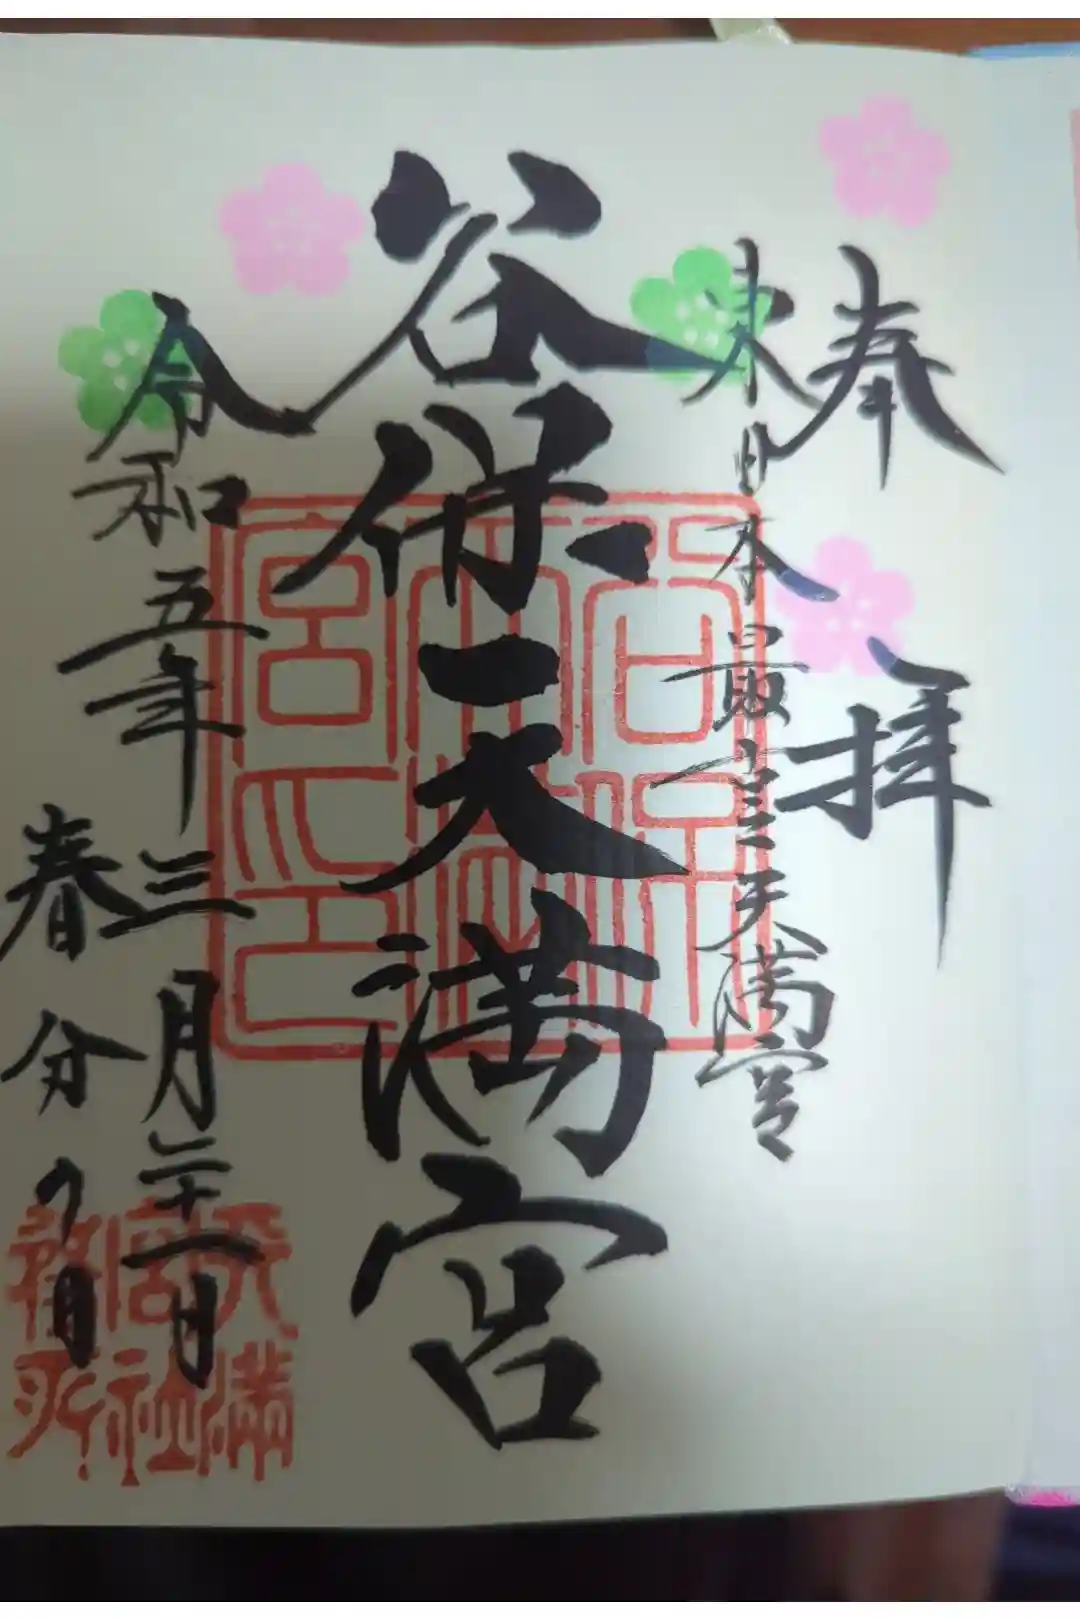 奉拝
東日本最 天満宮
谷保天満宮
令和五年三月二十一日
春分の日
谷保天満宮印
天満宮社務所